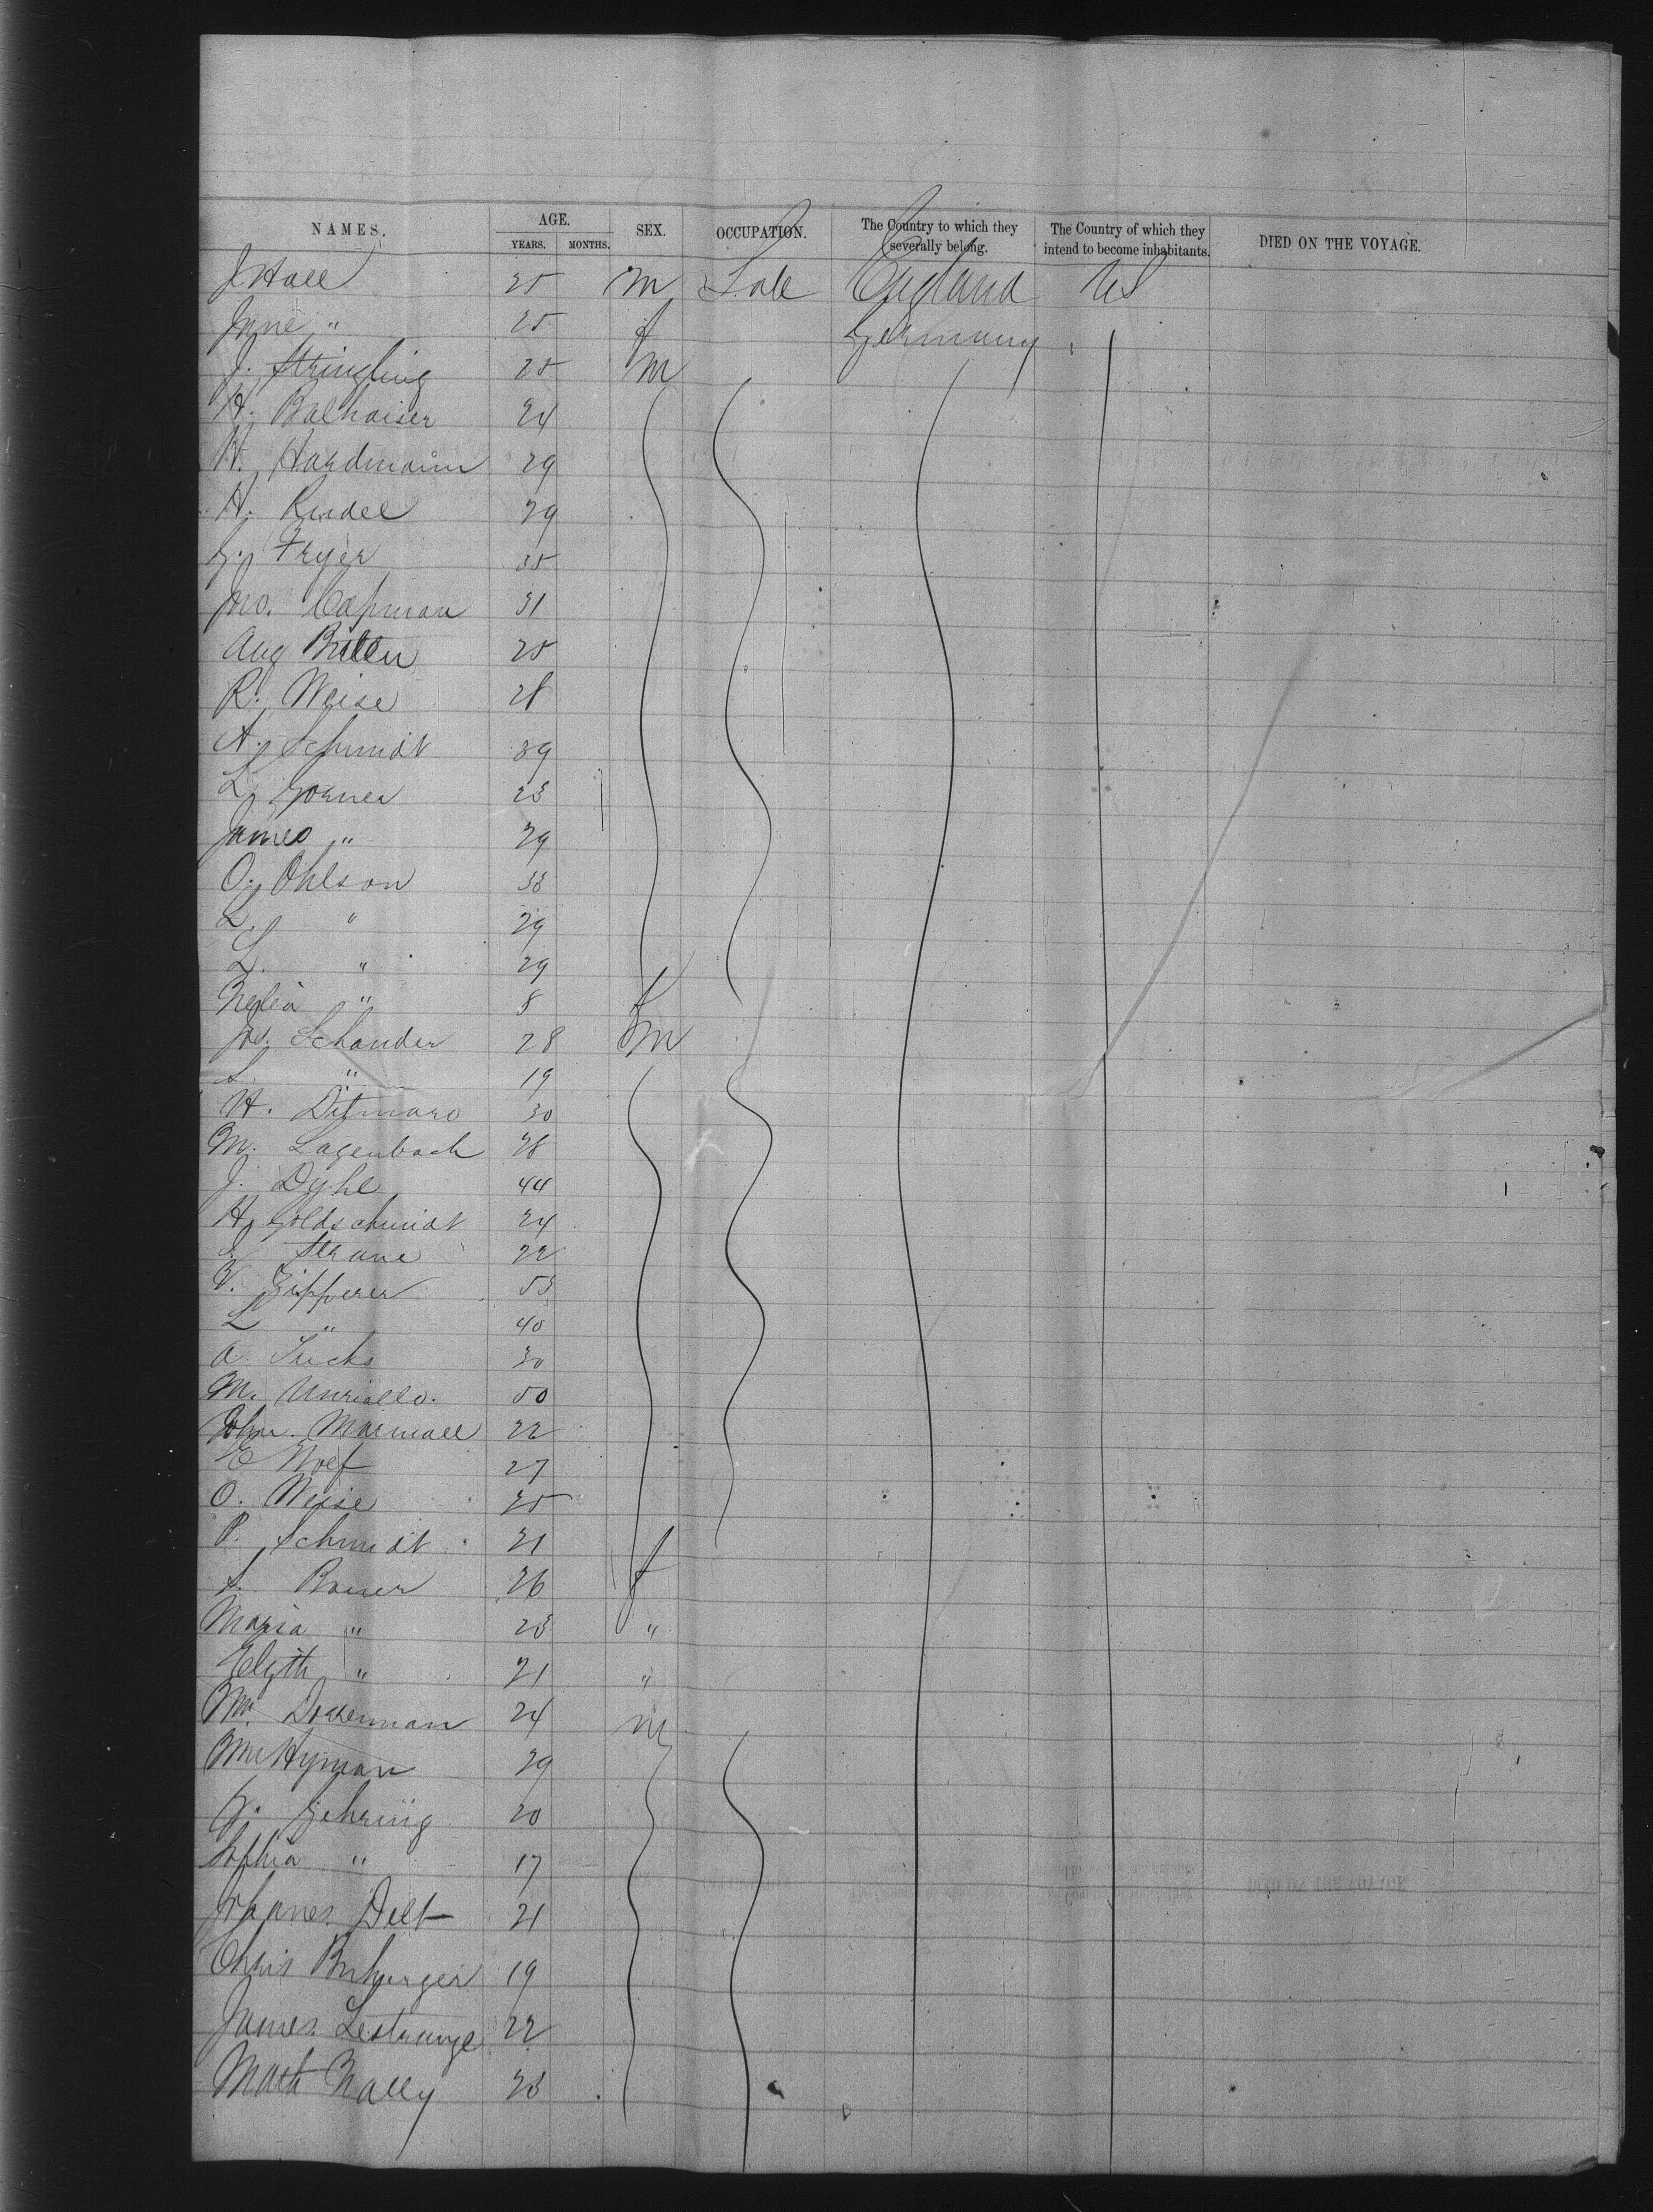 NAMES. AGE. SEX. OCCUPATION. The Country to which they severally belong. The Country of which they intend to become inhabitants. DIED ON THE VOYAGE.
YEARS. MONTHS.
J Hall 25 m Lab England US
Jane " 25 f Germany
J. Stringling 25 m
H. Balhaiser 24
H. Hardmann 29
H. Rudel 29
G. Fryer 35
Jno. Capman 31
Aug 25
R. Weise 28
A. Schmidt 39
L. Gorner 23
James " 29
O. Ohlson 38
L. " 29
L. " 29
8 f
Jos. Schander 28 m
S. " 19
H. Ditmaro 30
M. Lagenbach 28
J. Dyhl 44
H. Goldschmidt 24
22
V. Zipperer 53
L " 40
A. Fuchs 30
M. 50
John. 22
E Wolf 27
O. Weise 25
P. Schmidt 21
S. Bauer 26 f
Maria " 23 "
Elizth " 21 "
Wm. 24 m
Wm Hyman 29
G. Gehring 20
Sophia " 17
Johannes Delt 21
Chris 19
James Lestrange 22
Math Nally 23